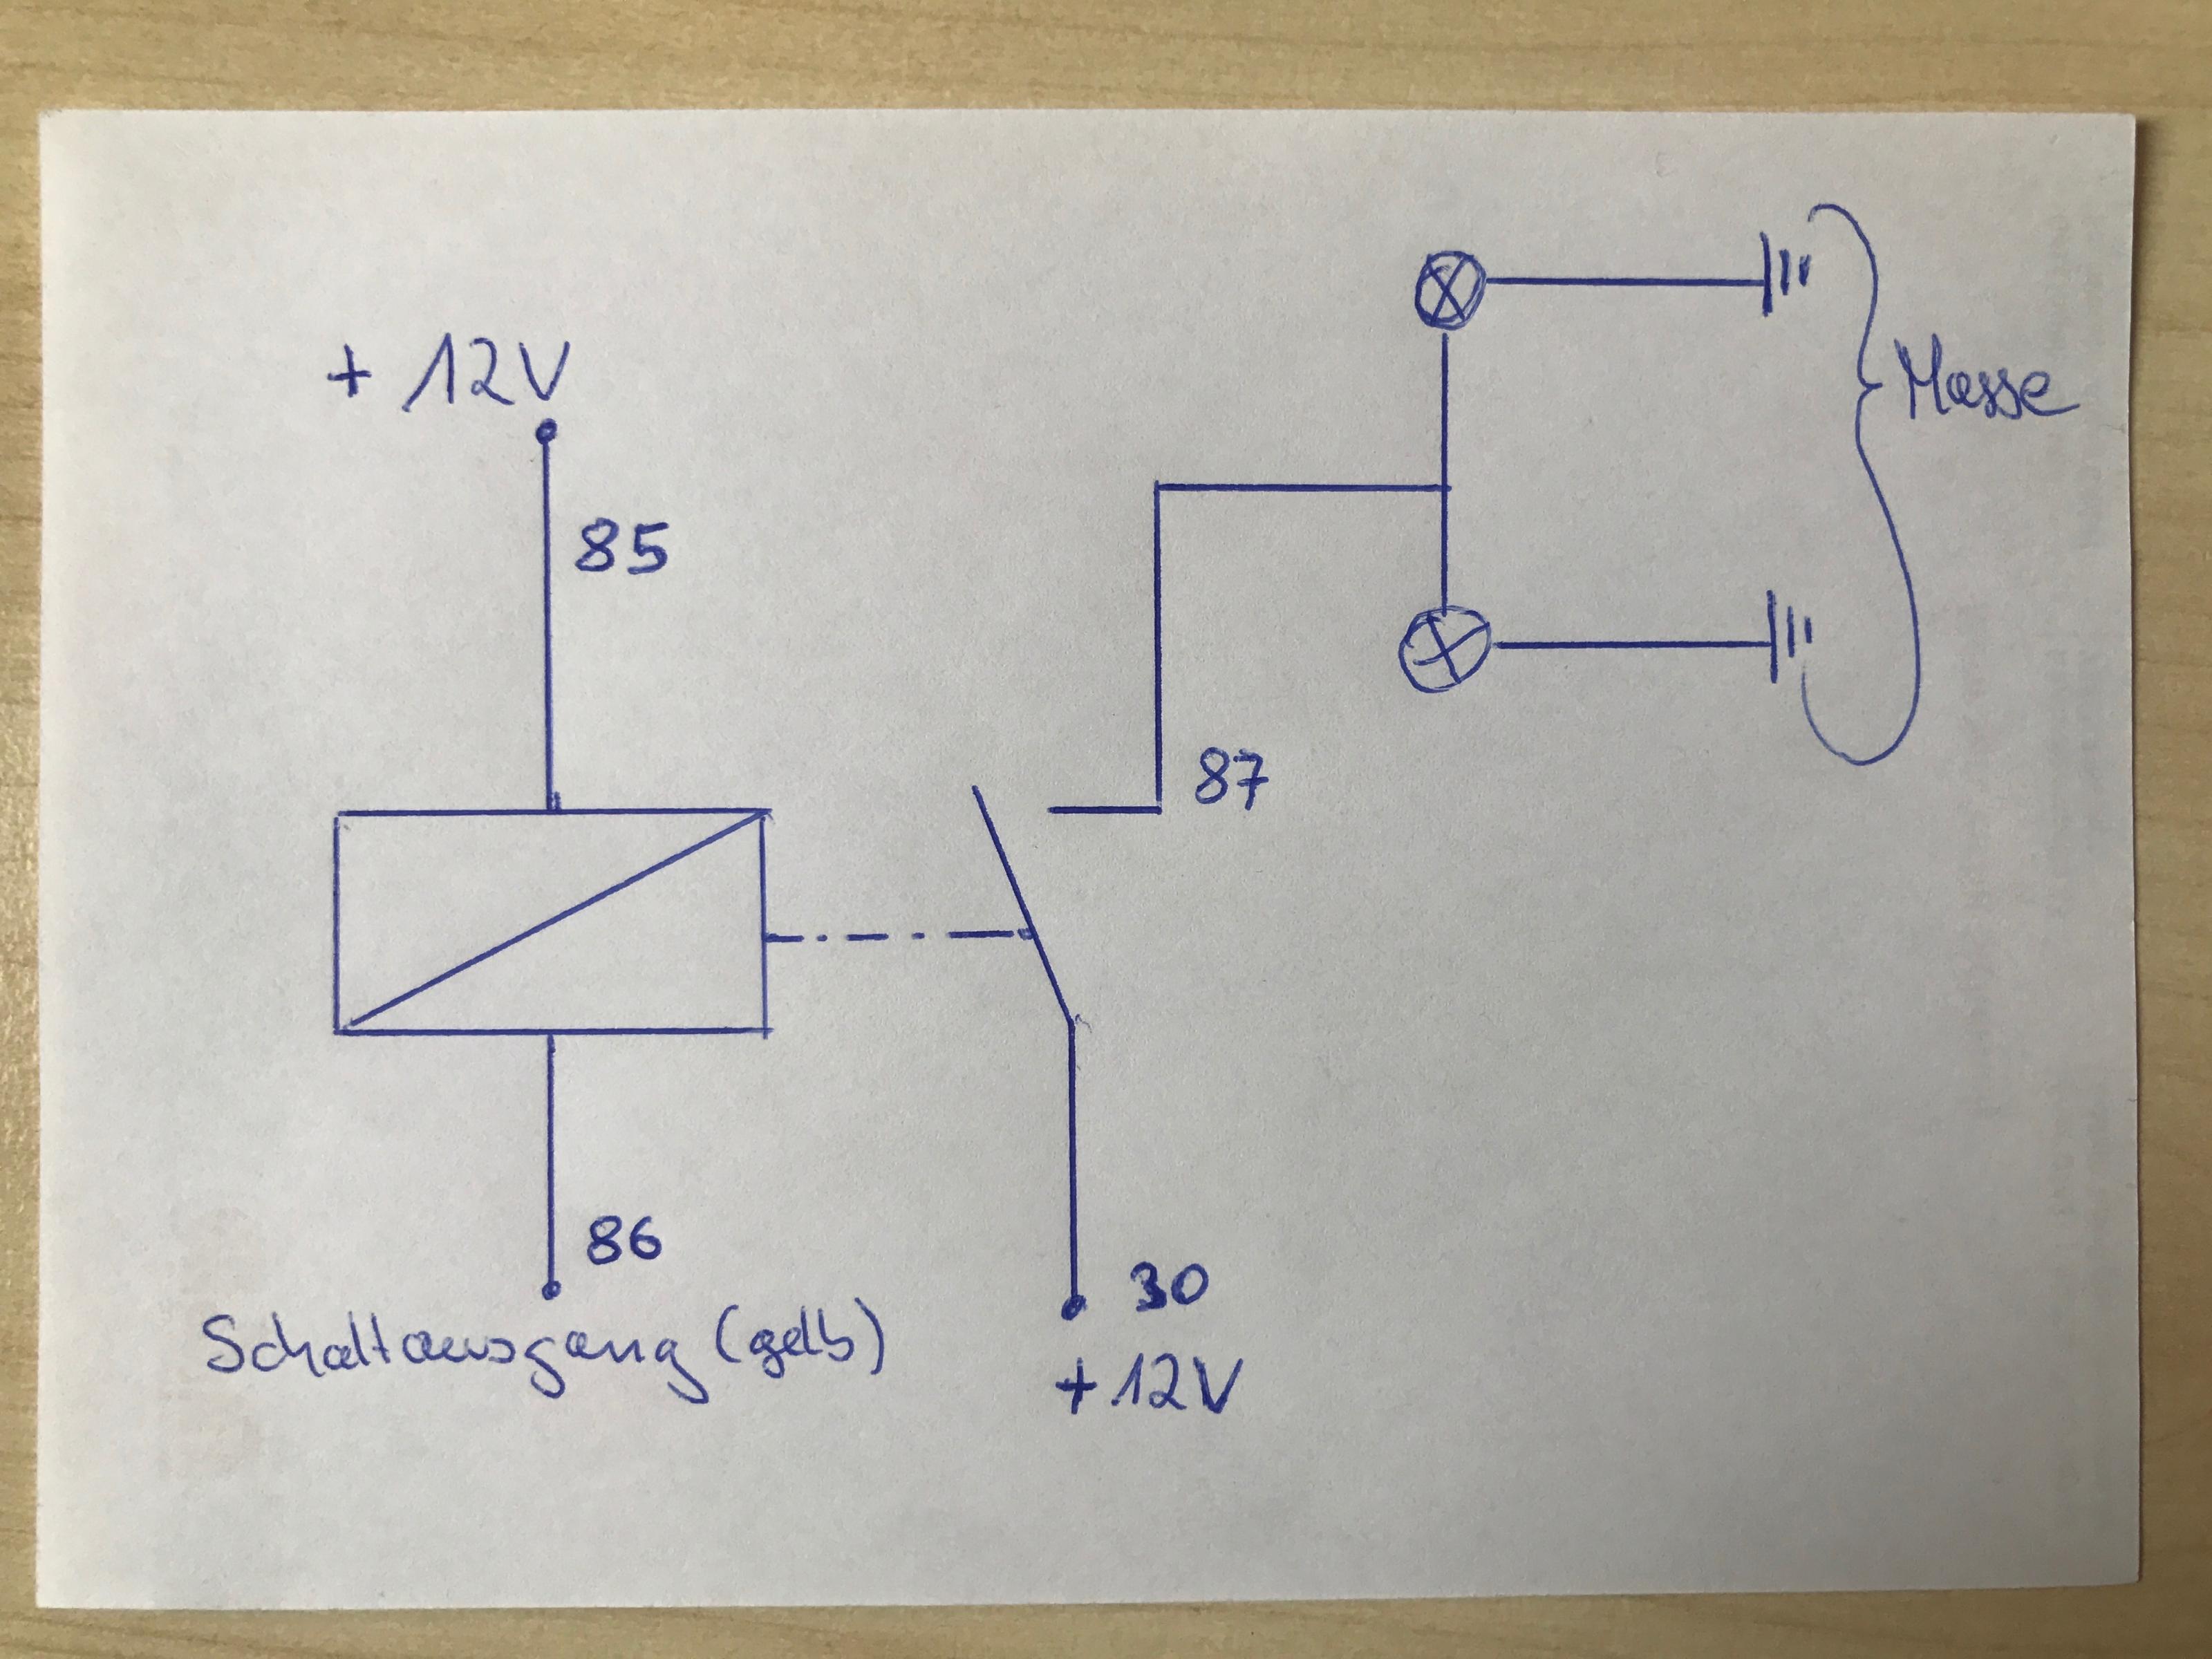 + 12V
85
Masse
87
86
30
Schaltausgang (gelb)
+12V